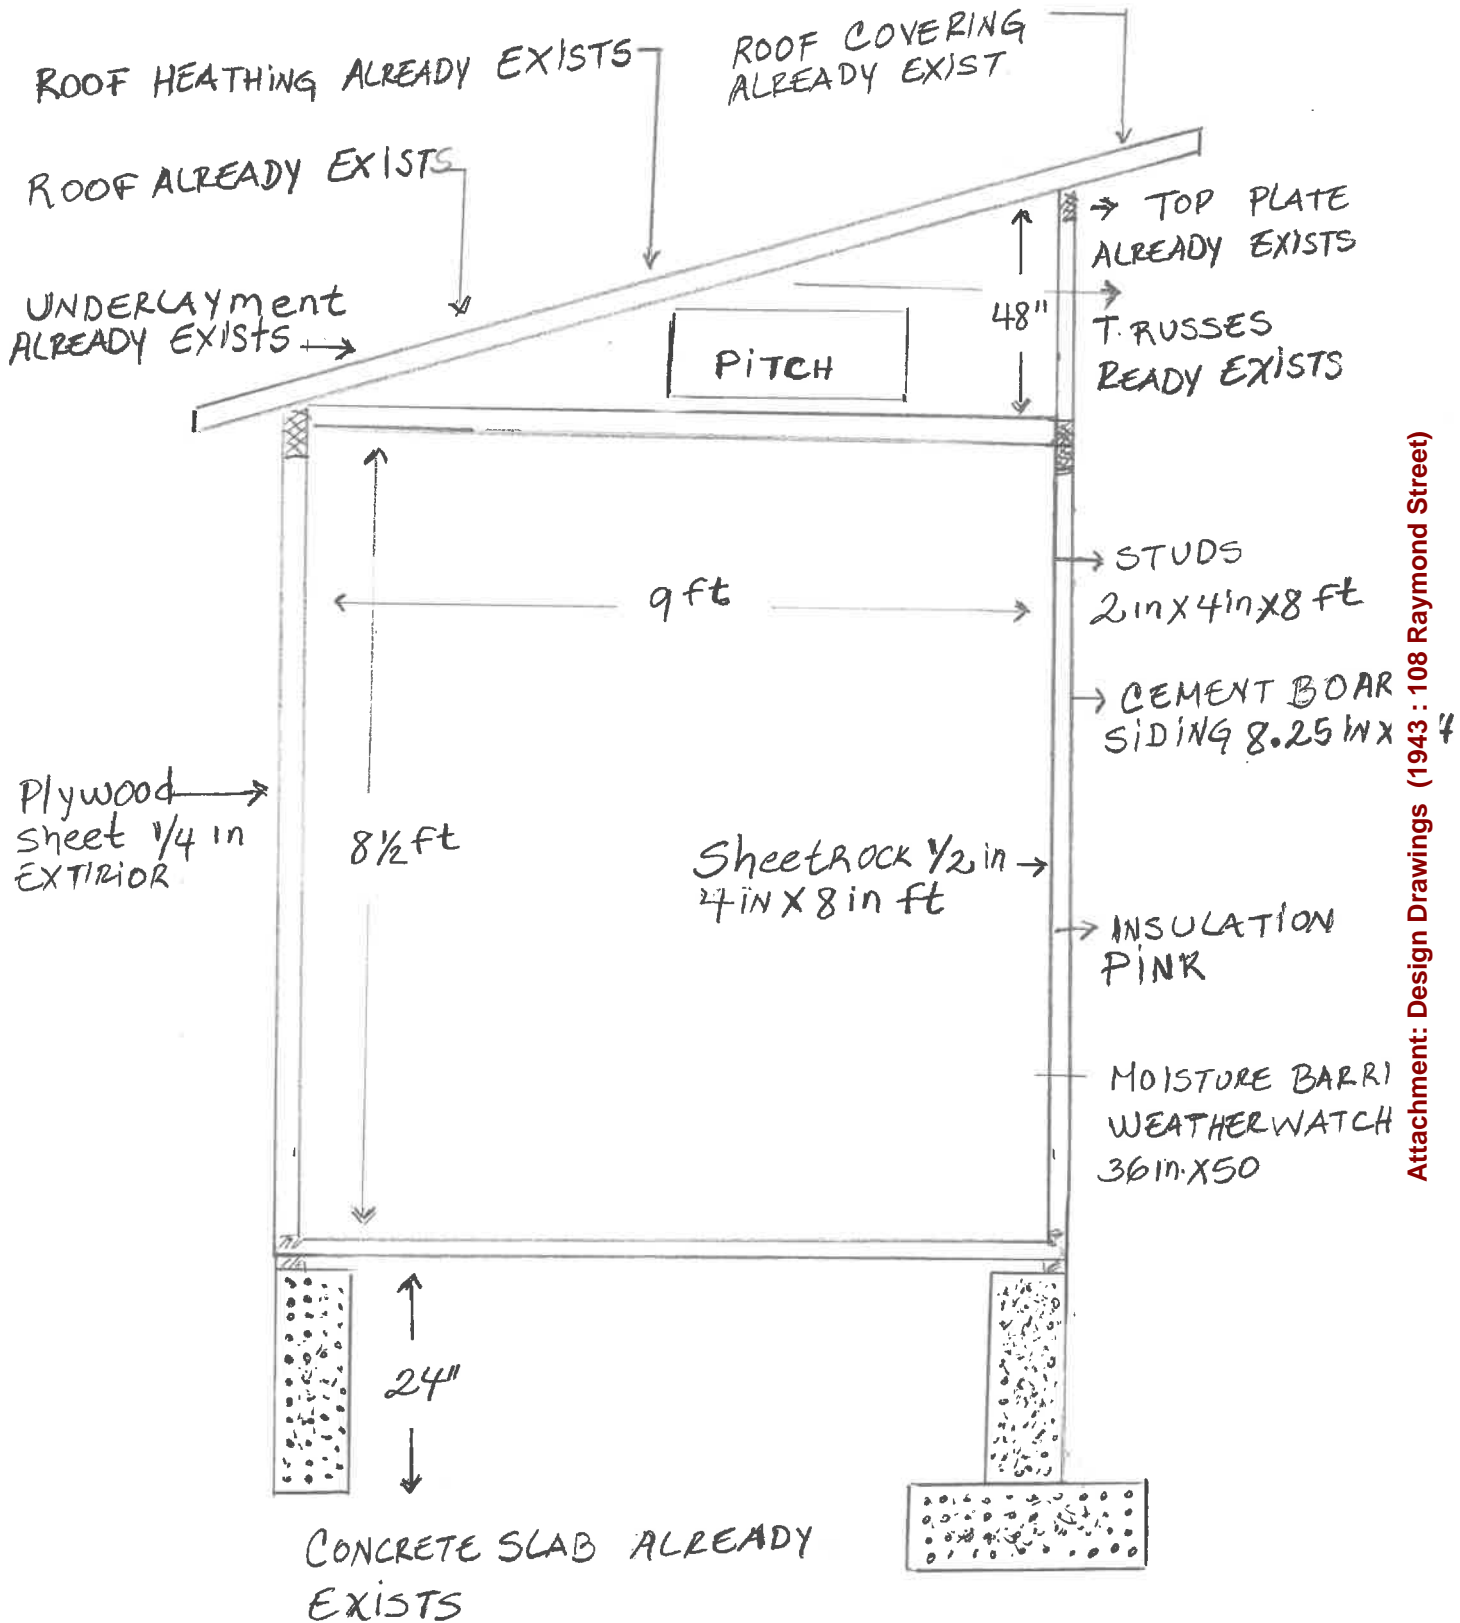 ROOF HEATHING ALREADY EXISTS
ROOF COVERING
ALREADY EXIST
ROOF ALREADY EXISTS
TOP PLATE
ALREADY EXISTS
UNDERLAYment
ALREADY EXISTS
48"
T.RUSSES
READY EXISTS
PITCH
STUDS
2in X 4in X 8 ft
9 ft
CEMENT BOAR
SIDING 8.25 IN X
Plywood
sheet 1/4 in
EXTIRIOR
8 1/2 ft
SheetROCK 1/2 in
4 IN X 8 in ft
INSULATION
PINK
MOISTURE BARRI
WEATHERWATCH
36 in. X50
24"
CONCRETE SLAB ALREADY
EXISTS
Attachment: Design Drawings (1943 : 108 Raymond Street)